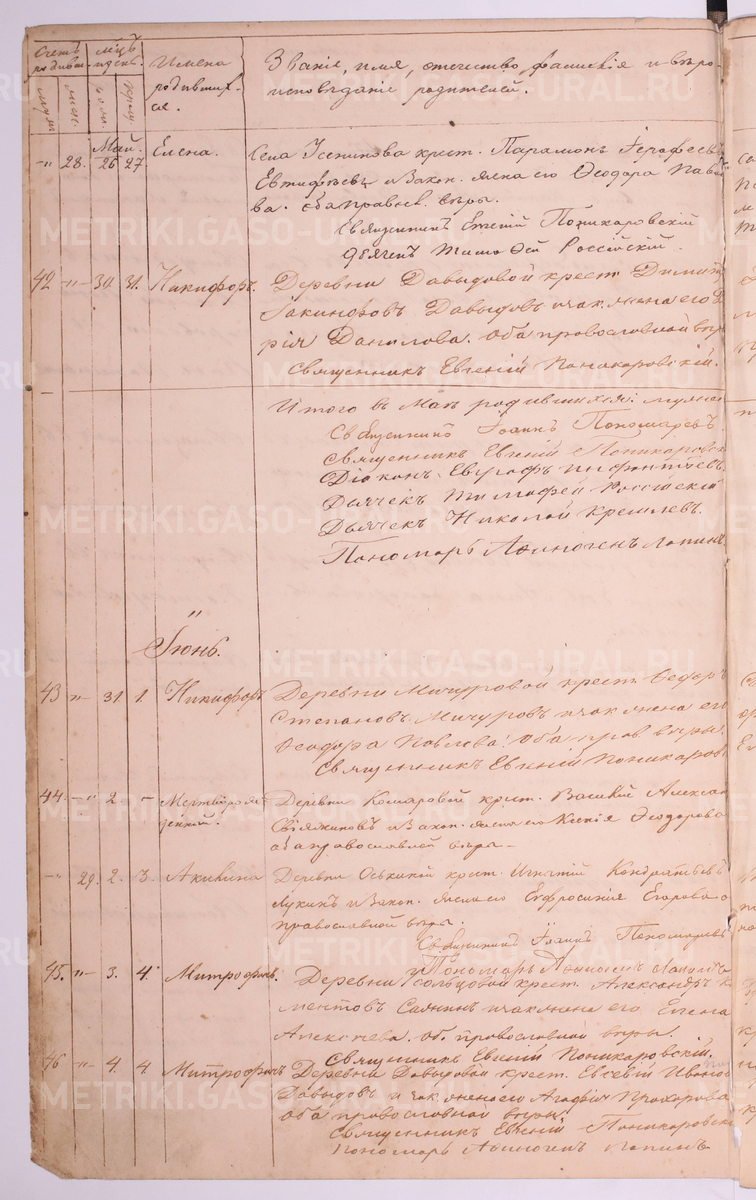 Счетъ родивш. мѣц. и день. Имена родивших-ся. Званіе, имя, отчество, фамилія и вѣро-
исповѣданіе родителей.
муж. жен.
Май.
" 28. 26 27. Елена. Села крест. Парамонъ Іерофеевъ
Евтифѣевъ и закон. жена его Ѳеодора Павло
ва. оба правосл. вѣры.
Священникъ Евгеній Поникаровскій
Дьячекъ Тимоѳей Россійскій.
42 " 30. 31. Никифоръ. Деревни Давыдовой крест. Димит
Іакинфовъ Давыдовъ и зак. жена его Да
рія Данилова. оба провославной вѣр
Священникъ Евгеній Поникаровскій.
Итого въ Маѣ родившихся: мужеск
Священникъ Іоаннъ Пономаревъ
Священникъ Евгеній Поникаровск
Діаконъ Евграфъ
Дьячекъ Тимофей Россійскій
Дьячекъ Николай Кремлевъ.
Пономарь Аѳиногенъ Лапинъ.
Іюнь.
43 " 31 1. Никифоръ Деревни Мичуровой крест. Ѳедоръ
Степановъ Мичуровъ и зак. жена его
Ѳеодора Павлова. Оба прав. вѣры.
Священникъ Евгеній Поникаров
44. " 2 - Мертворож Деревни Комаровой крест. Василій Алексан
денный. и закон. жена его Ксенія Ѳеодорова
оба православной вѣры
" 29. 2. 3. Акилина Деревни Оськиной крест. Игнатій Кондратьевъ
Лукинъ и закон. жена его Евфросинія Егорова о
православной вѣры.
Священникъ Іоаннъ Пономаревъ
Пономарь Аѳиногенъ Лапинъ
45. " 3. 4. Митрофанъ. Деревни крест. Александръ Кли
ментовъ и зак. жена его Елена
Алексѣева. об. провославной вѣры.
Священникъ Евгеній Поникаровскій.
46 " 4. 4 Митрофанъ Деревни Давыдовой крест. Евсевій Иванов
Давыдовъ и зак. жена его Агафія Прохорова
оба провославной вѣры
Священникъ Евгеній Поникаровск
Пономарь Аѳиногенъ Лапинъ
METRIKI.GASO-URAL.RU